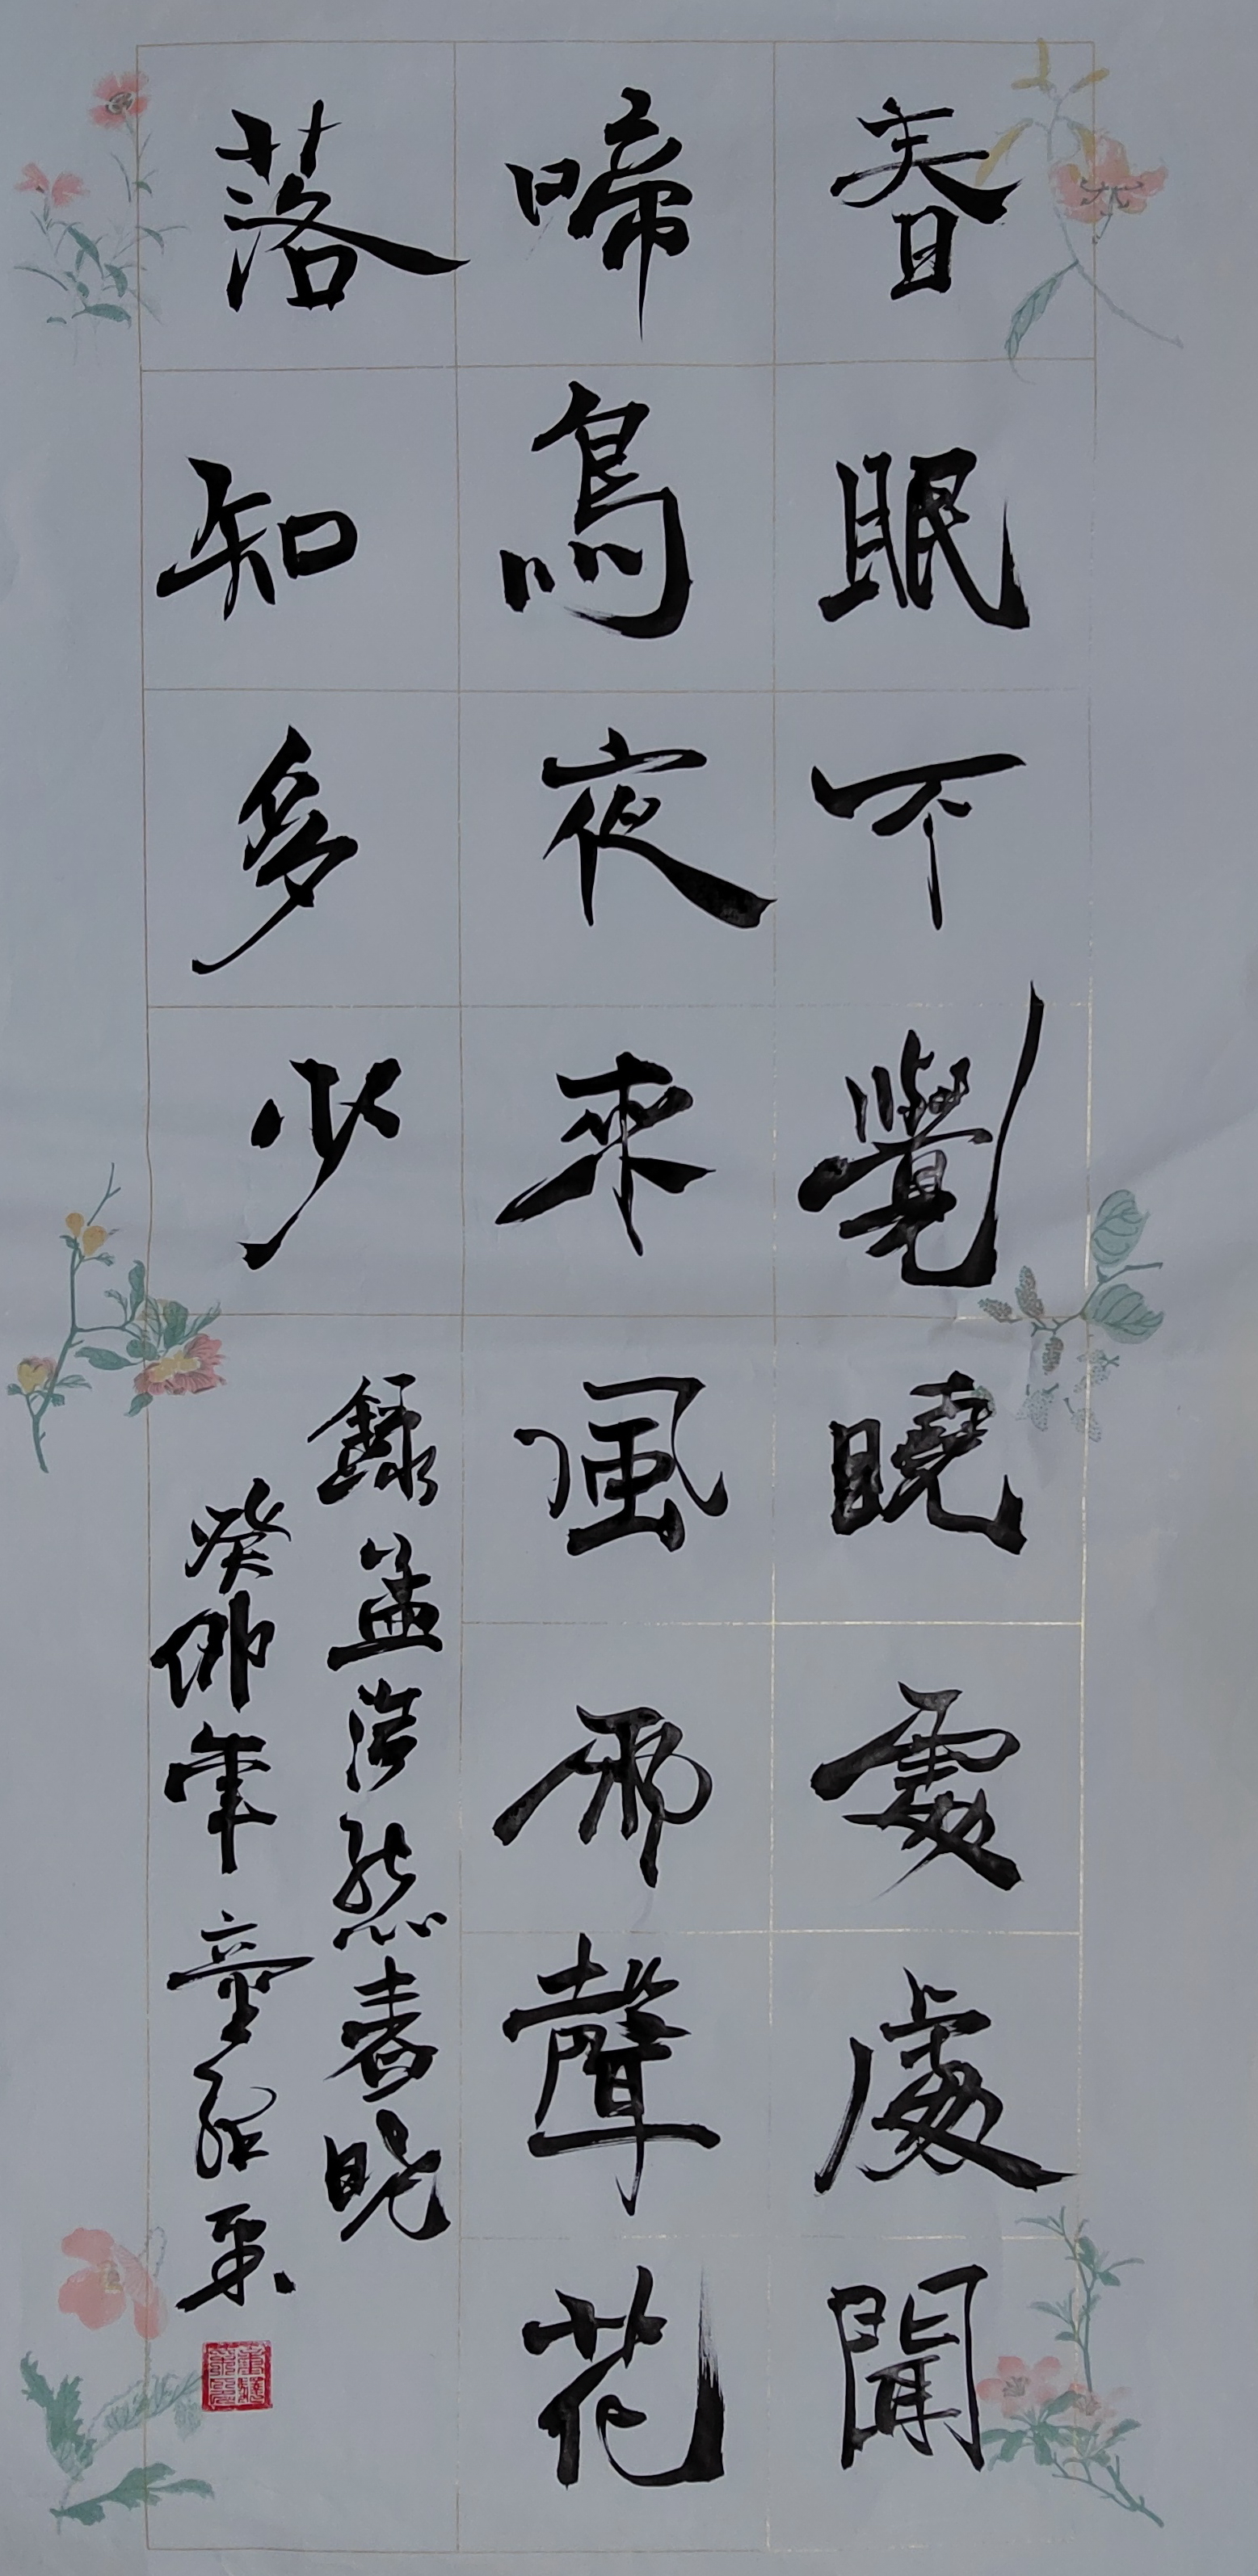 春眠不覺曉處處聞
啼鳥夜來風雨聲花
落知多少
錄孟浩然春曉
癸卯年童